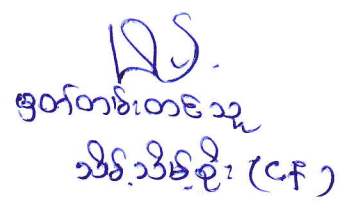 မှတ်တမ်းတင်သူ
သိမ့်သိမ့်စိုး (ငန)